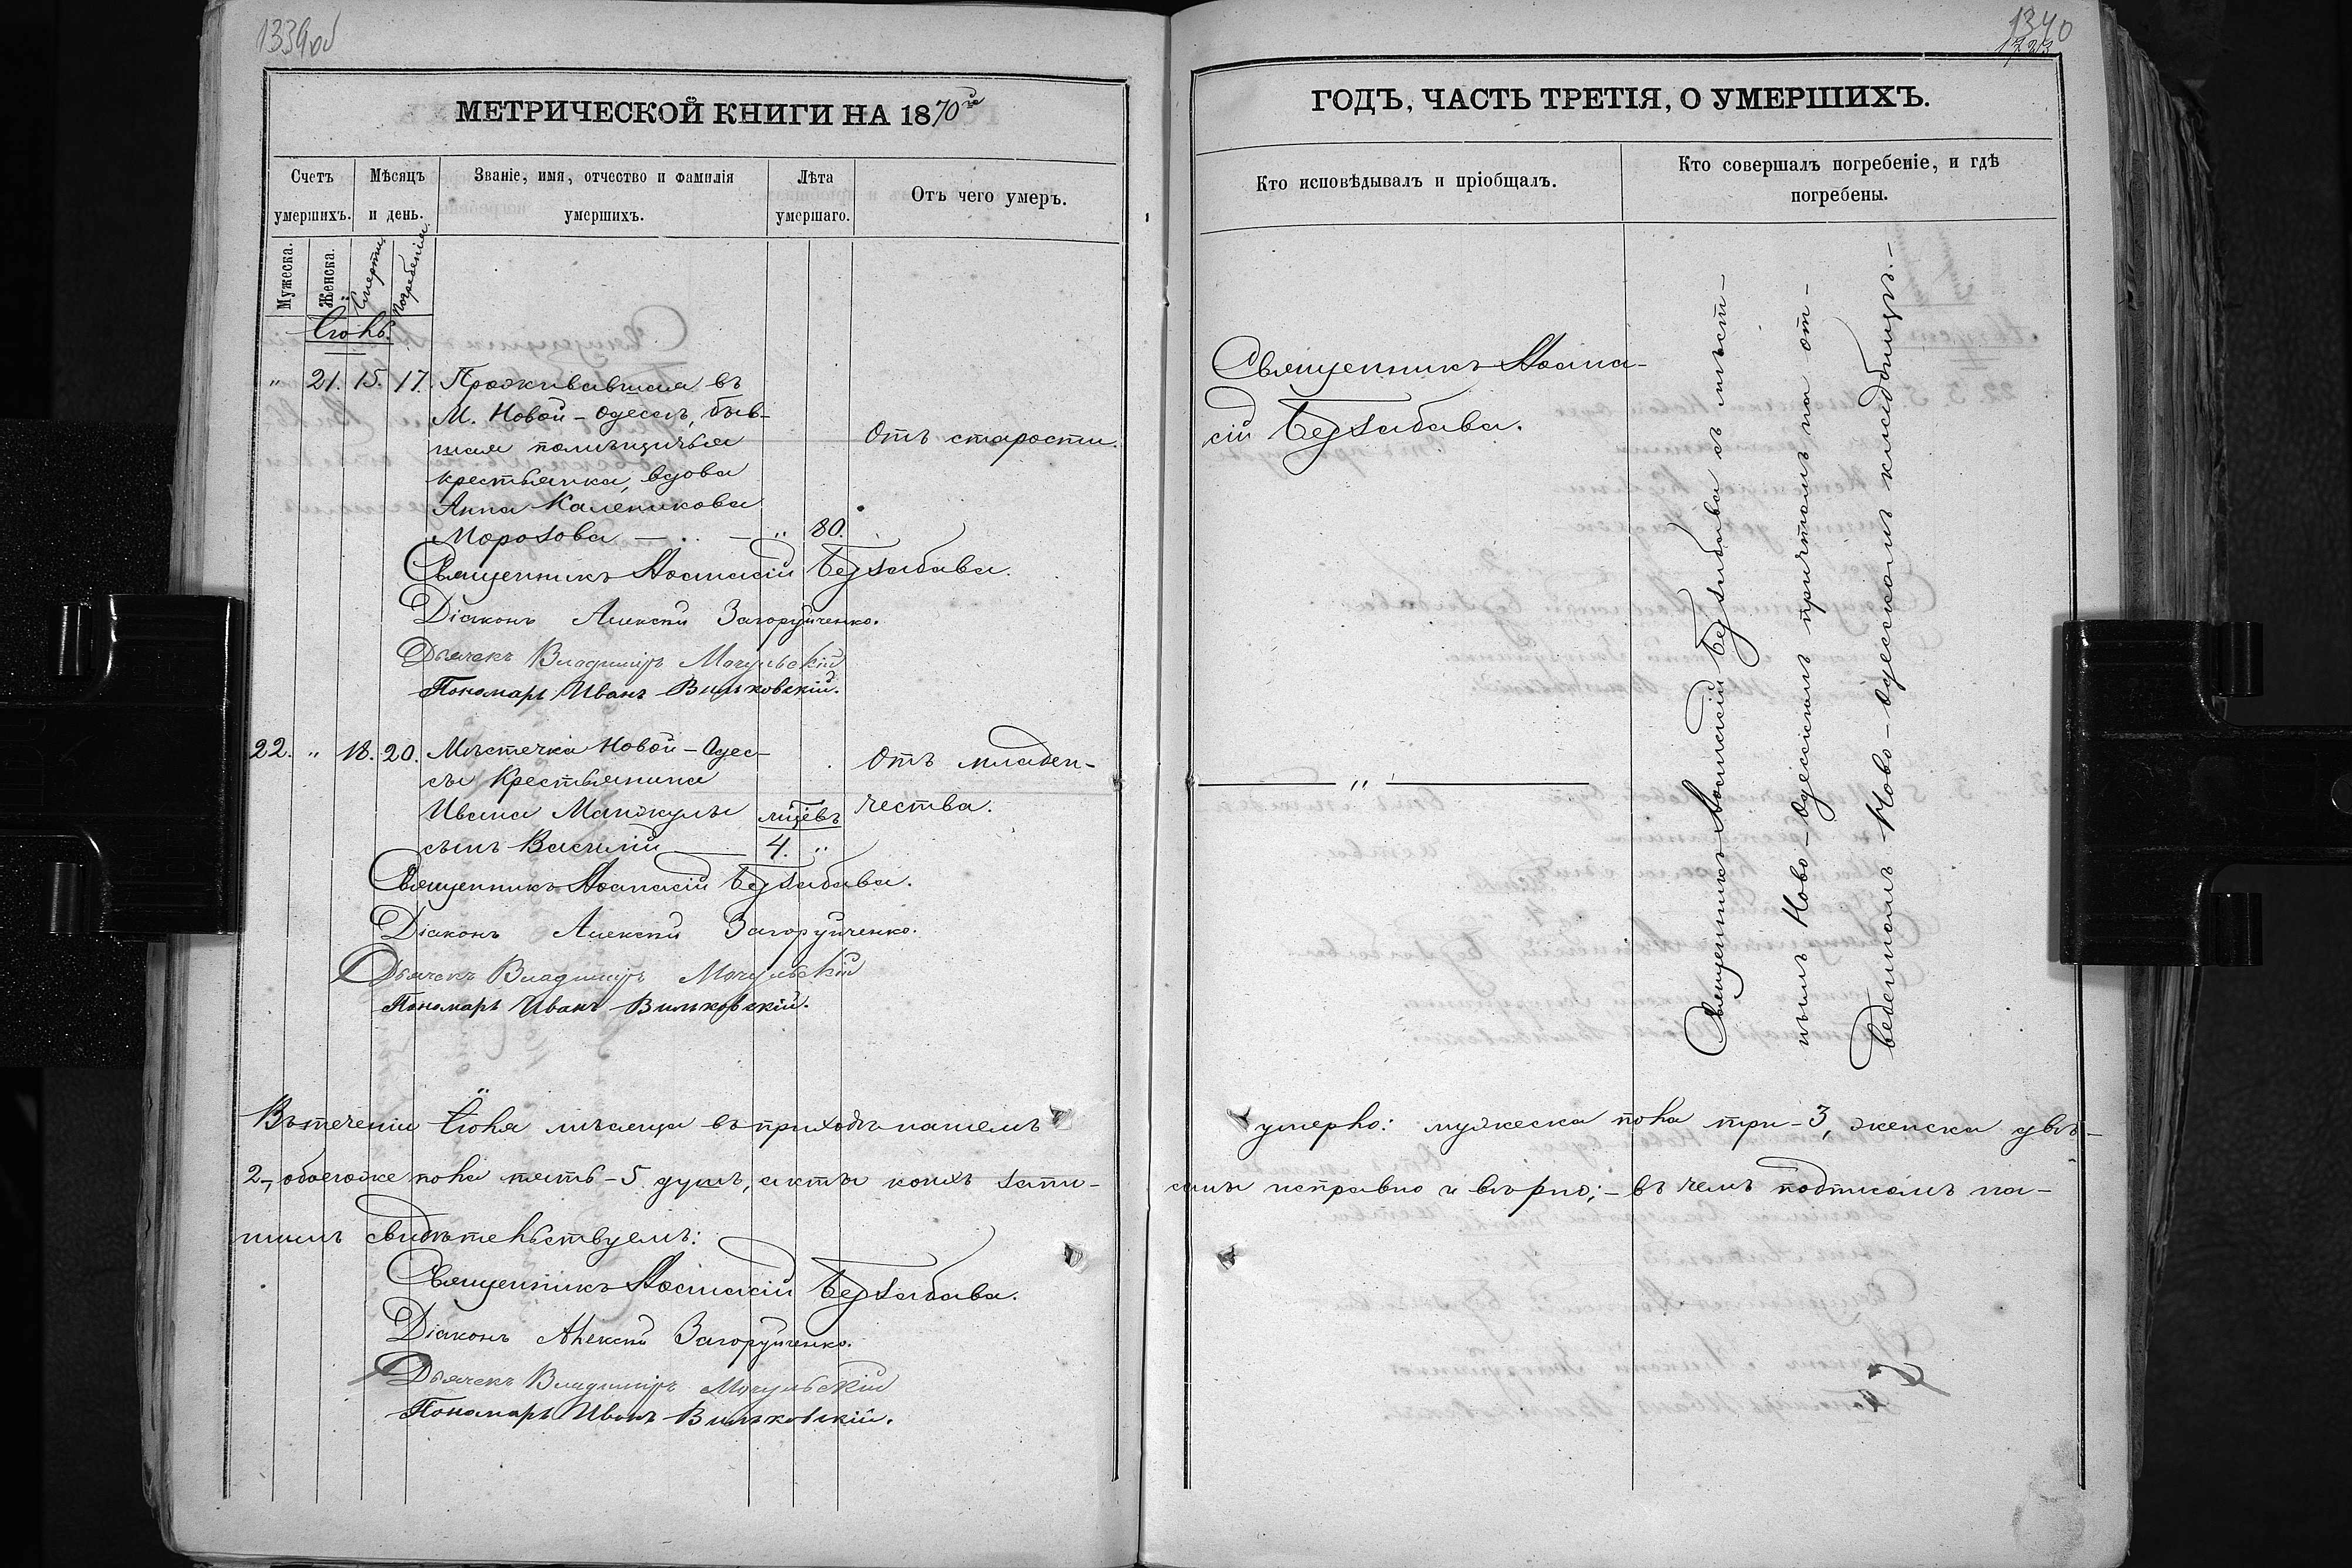 1339об
МЕТРИЧЕСКОЙ КНИГИ НА 1870й
Счетъ умершихъ.
Мѣсяцъ и день.
Званіе, имя, отчество и фамилія умершихъ.
Лѣта умершаго.
Отъ чего умеръ.
Мужеска.
Женска.
Смерти.
Погребенія.
Іюль.
" 21. 15. 17. Проживавшая въ
М. Новой-Одессѣ, быв-
шая помѣщичья
крестьянка, вдова
Анна Каленикова
Морозова — " 80.
Отъ старости.
Священникъ Аѳанасій Беззабава.
Діаконъ Алексій Загоруйченко.
Дьячекъ Владиміръ Мочульскій
Пономарь Иванъ Вильковскій.
22. " 18. 20. Мѣстечка Новой-Одес-
сы Крестьянина
Ивана Манжулы
сынъ Василій — 4. "
мѣцевъ
Отъ младен-
чества.
Священникъ Аѳанасій Беззабава.
Діаконъ Алексій Загоруйченко.
Дьячекъ Владиміръ Мочульскій
Пономарь Иванъ Вильковскій.
Въ теченіи Іюля мѣсяца въ приходѣ нашемъ
2-, обоегоже пола пять-5 душъ, акты коихъ запи-
шимъ свидѣтельствуемъ:
Священникъ Аѳанасій Беззабава.
Діаконъ Алексій Загоруйченко.
Дьячекъ Владиміръ Мочульскій
Пономарь Иванъ Вильковскій.
1340
ГОДЪ, ЧАСТЬ ТРЕТІЯ, О УМЕРШИХЪ.
Кто исповѣдывалъ и пріобщалъ.
Кто совершалъ погребеніе, и гдѣ
погребены.
Священникъ Аѳана-
сій Беззабава.
"
Священникъ Аѳанасій Беззабава съ мѣст-
нымъ Ново-Одесскимъ причтомъ на от-
веденномъ Ново-Одесскомъ кладбищѣ.-
умерло: мужеска пола три-3, женска двѣ-
саны исправно и вѣрно;- въ чемъ подписомъ на-